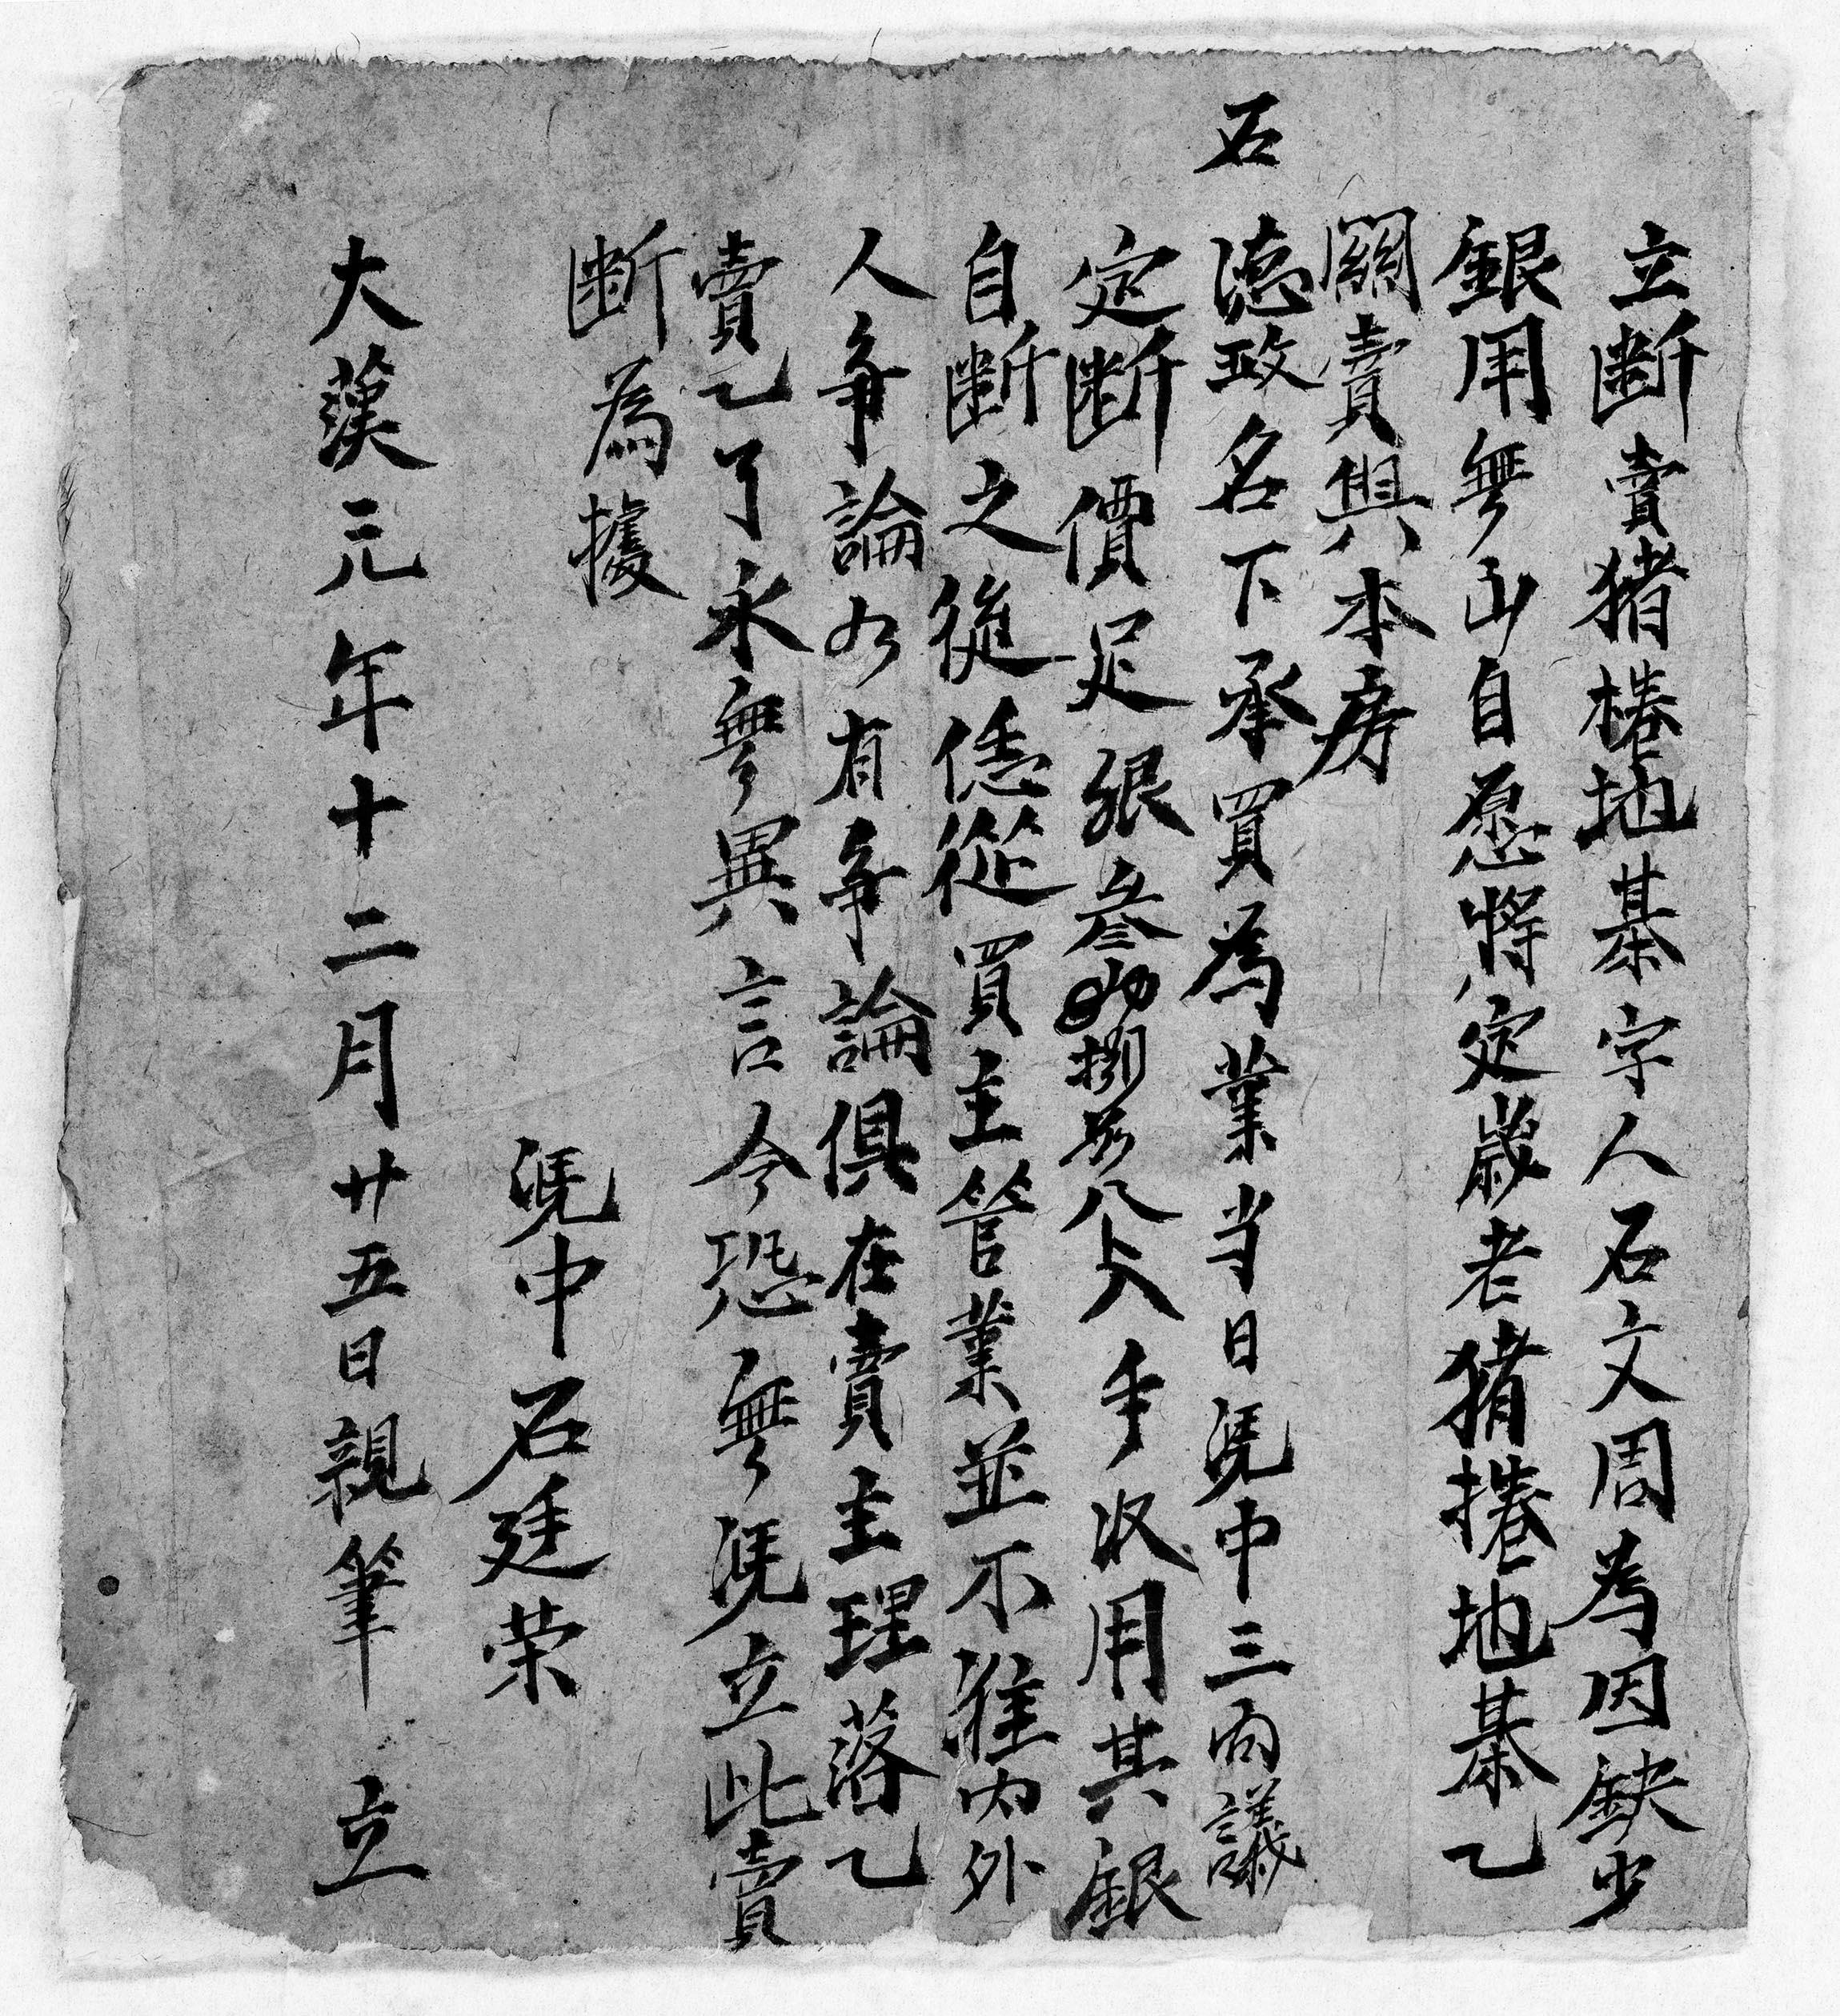 立断賣猪棬地基字人石文周為因缺少
銀用無山自愿将定嵗老猪捲地基乙
關賣與本房
石
德政名下承買為業当日凴中三面議
定断價足銀叁捌八上入手收用其銀
自断之後恁從買主管業並不准内外
人争論如有争論俱在賣主理落乙
賣乙了永無異言今恐無凴立此賣
断為據
凴中石廷荣
大漢元年十二月廿五日親筆立